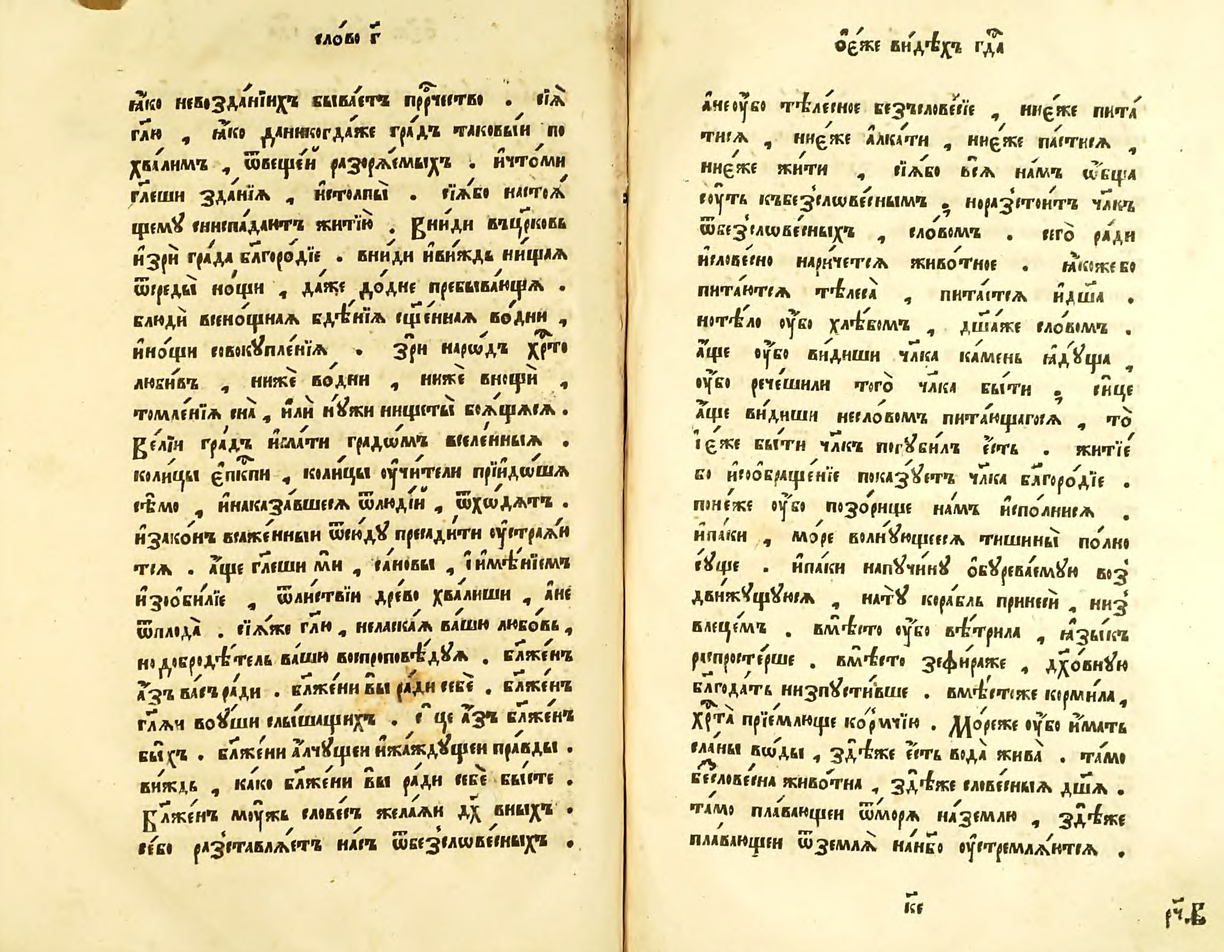 сло́во г҃
ꙗ҆́ко невозда́нїихъ быва́етъ прⷪ҇рчество . сїѧ̀
гл҃ю , ꙗ҆́ко даникогда́же гра́дъ таковы́и по
хва́лимъ , ѿвеще́й разорѧ́емыхъ . и҆что́ми
гл҃еши зда́нїѧ , и҆столпы̀ . сїѧ́бо настоѧ́
щемꙋ сниспа́даютъ житїю̀ . Вни́ди въцр҃ковь
и҆зрѝ гра́да блгⷪ҇ро́дїе . вни́ди и҆ви́ждь ни́щаѧ
ѿсреды̀ но́щи , да́же до́дне пребыва́ющаѧ .
блюдѝ всено́щнаѧ бдѣ́нїѧ сщ҃е́ннаѧ во́дни ,
и҆но́щи совокꙋпле́нїѧ . Зрѝ наро́дъ хрⷭ҇то
люби́въ , нижѐ во́дни , нижѐ внощѝ ,
томле́нїѧ сна̀ , и҆лѝ нꙋ́жи нищеты̀ боѧ́щаѧсѧ .
Ве́лїи гра́дъ и҆ма́ти градѡ́мъ вселе́нныѧ .
коли́цы є҆пⷭ҇кпи , коли́цы ᲂу҆чи́тели прїидо́ша
сѣ́мо , и҆наказа́вшесѧ ѿлюді́й , ѿхѡ́дѧтъ .
и҆зако́нъ влаже́нныи ѿсю́дꙋ пресади́ти ᲂу҆страѧ́и
тсѧ . а҆́ще гл҃еши мѝ , са́новы , і҆и҆мѣ́нїемъ
и҆зᲂѻби́лїе , ѿли́ствїи дре́во хва́лиши , а҆́не
ѿплода̀ . сїѧ́же гл҃ю , нела́скаѧ ва́шю любо́вь ,
нодобродѣ́тель ва́шю воспроповѣ́дꙋѧ . бл҃же́нъ
а҆́зъ ва́съ ра́ди . бл҃же́ни вы̀ ра́ди себѐ . бл҃же́нъ
гл҃ѧи воᲂу҆ши слы́шащихъ . си́це а҆́зъ бл҃же́нъ
бы́хъ . бл҃же́ни а҆́лчꙋщеи и҆жа́ждꙋщеи пра́вды .
ви́ждь , ка́ко бл҃же́ни вы̀ ра́ди себѐ бы́сте .
Бл҃же́нъ мᲂу́жь слове́съ жела́ѧи дх҃ вныхъ .
се́бо разставлѧ́етъ на́съ ѿбезслѡве́сныхъ .
ѻ҆є́же ви́дѣхъ гдⷭ҇а
а҆неᲂу҆́бо тѣле́сное безъслове́сїе , ниє́же пита́
тисѧ , ниє́же а҆лка́ти , ниє́же па́стисѧ ,
ниє́же жи́ти , сїѧ́бо всѧ̀ на́мъ ѡ҆́бща
сᲂу́ть къбезслѡве́снымъ ; норазстои́тъ чл҃къ
ѿбезслѡве́сныхъ , сло́вомъ . сего̀ ра́ди
и҆слове́сно нарича́етсѧ живо́тное . ꙗ҆́коже бо
пита́ютсѧ тѣлеса̀ , пита́етсѧ и҆дш҃а .
нотѣ́ло ᲂу҆́бо хлѣ́бомъ , дш҃а́же сло́вомъ .
а҆́ще ᲂу҆́бо ви́диши чл҃ка ка́мень ꙗ҆дꙋ́ща ,
ᲂу҆́бо рече́шили того̀ чл҃ка бы́ти ; си́це
а҆́ще ви́диши несло́вомъ пита́ющагосѧ , то̀
і҆є́же бы́ти чл҃къ погꙋби́лъ є҆́сть . житїе́
бо и҆соᲂѻбраще́нїе показꙋ́етъ чл҃ка блгⷪ҇ро́дїе .
поне́же ᲂу҆́бо позо́рище на́мъ и҆спо́лнисѧ .
и҆па́ки , мо́ре волнꙋ́ющеесѧ тишины̀ по́лно
сꙋ́ще . и҆па́ки напꙋчи́нꙋ ѻ҆бꙋрева́емꙋю воз
дви́жꙋщꙋюсѧ , на́тꙋ кора́бль принесѝ , низ
влеце́мъ . вмѣ́сто ᲂу҆́бо вѣ́трила , ꙗ҆зы́къ
распросте́рше . вмѣ́сто зефи́раже , дх҃о́внꙋю
блг҃ода́ть низпꙋсти́вше . вмѣ́стоже корми́ла ,
хрⷭ҇та̀ прїе́млюще ко́рмчїю . Мо́реже ᲂу҆́бо и҆́мать
сла́ны во́ды , здѣ́же є҆́сть вода̀ жива̀ . та́мо
бе́словесна живо́тна , здѣ́же слове́сныѧ дш҃а .
та́мо пла́вающеи ѿмо́рѧ на́землю , здѣ́же
пла́вающеи ѿземлѧ̀ на́нбо ᲂу҆стремлѧ́ютсѧ .
к҃є